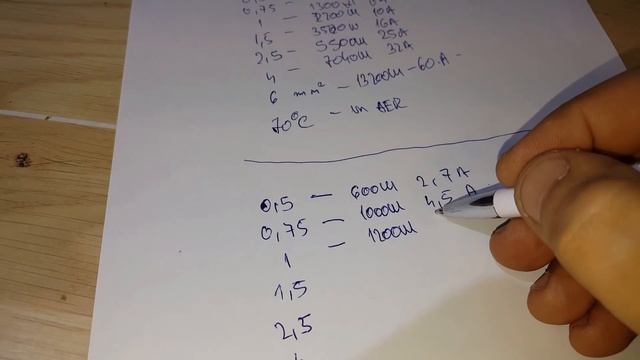 0,75 – 1300W
1 – 2200W 10A
1,5 – 3520W 16A
2,5 – 5500W 25A
4 – 7040W 32A
6 mm² – 13200W – 60 A
70°C – in AER
0,5 – 600W 2,7A
0,75 – 1000W 4,5 A
1 – 1200W
1,5
2,5